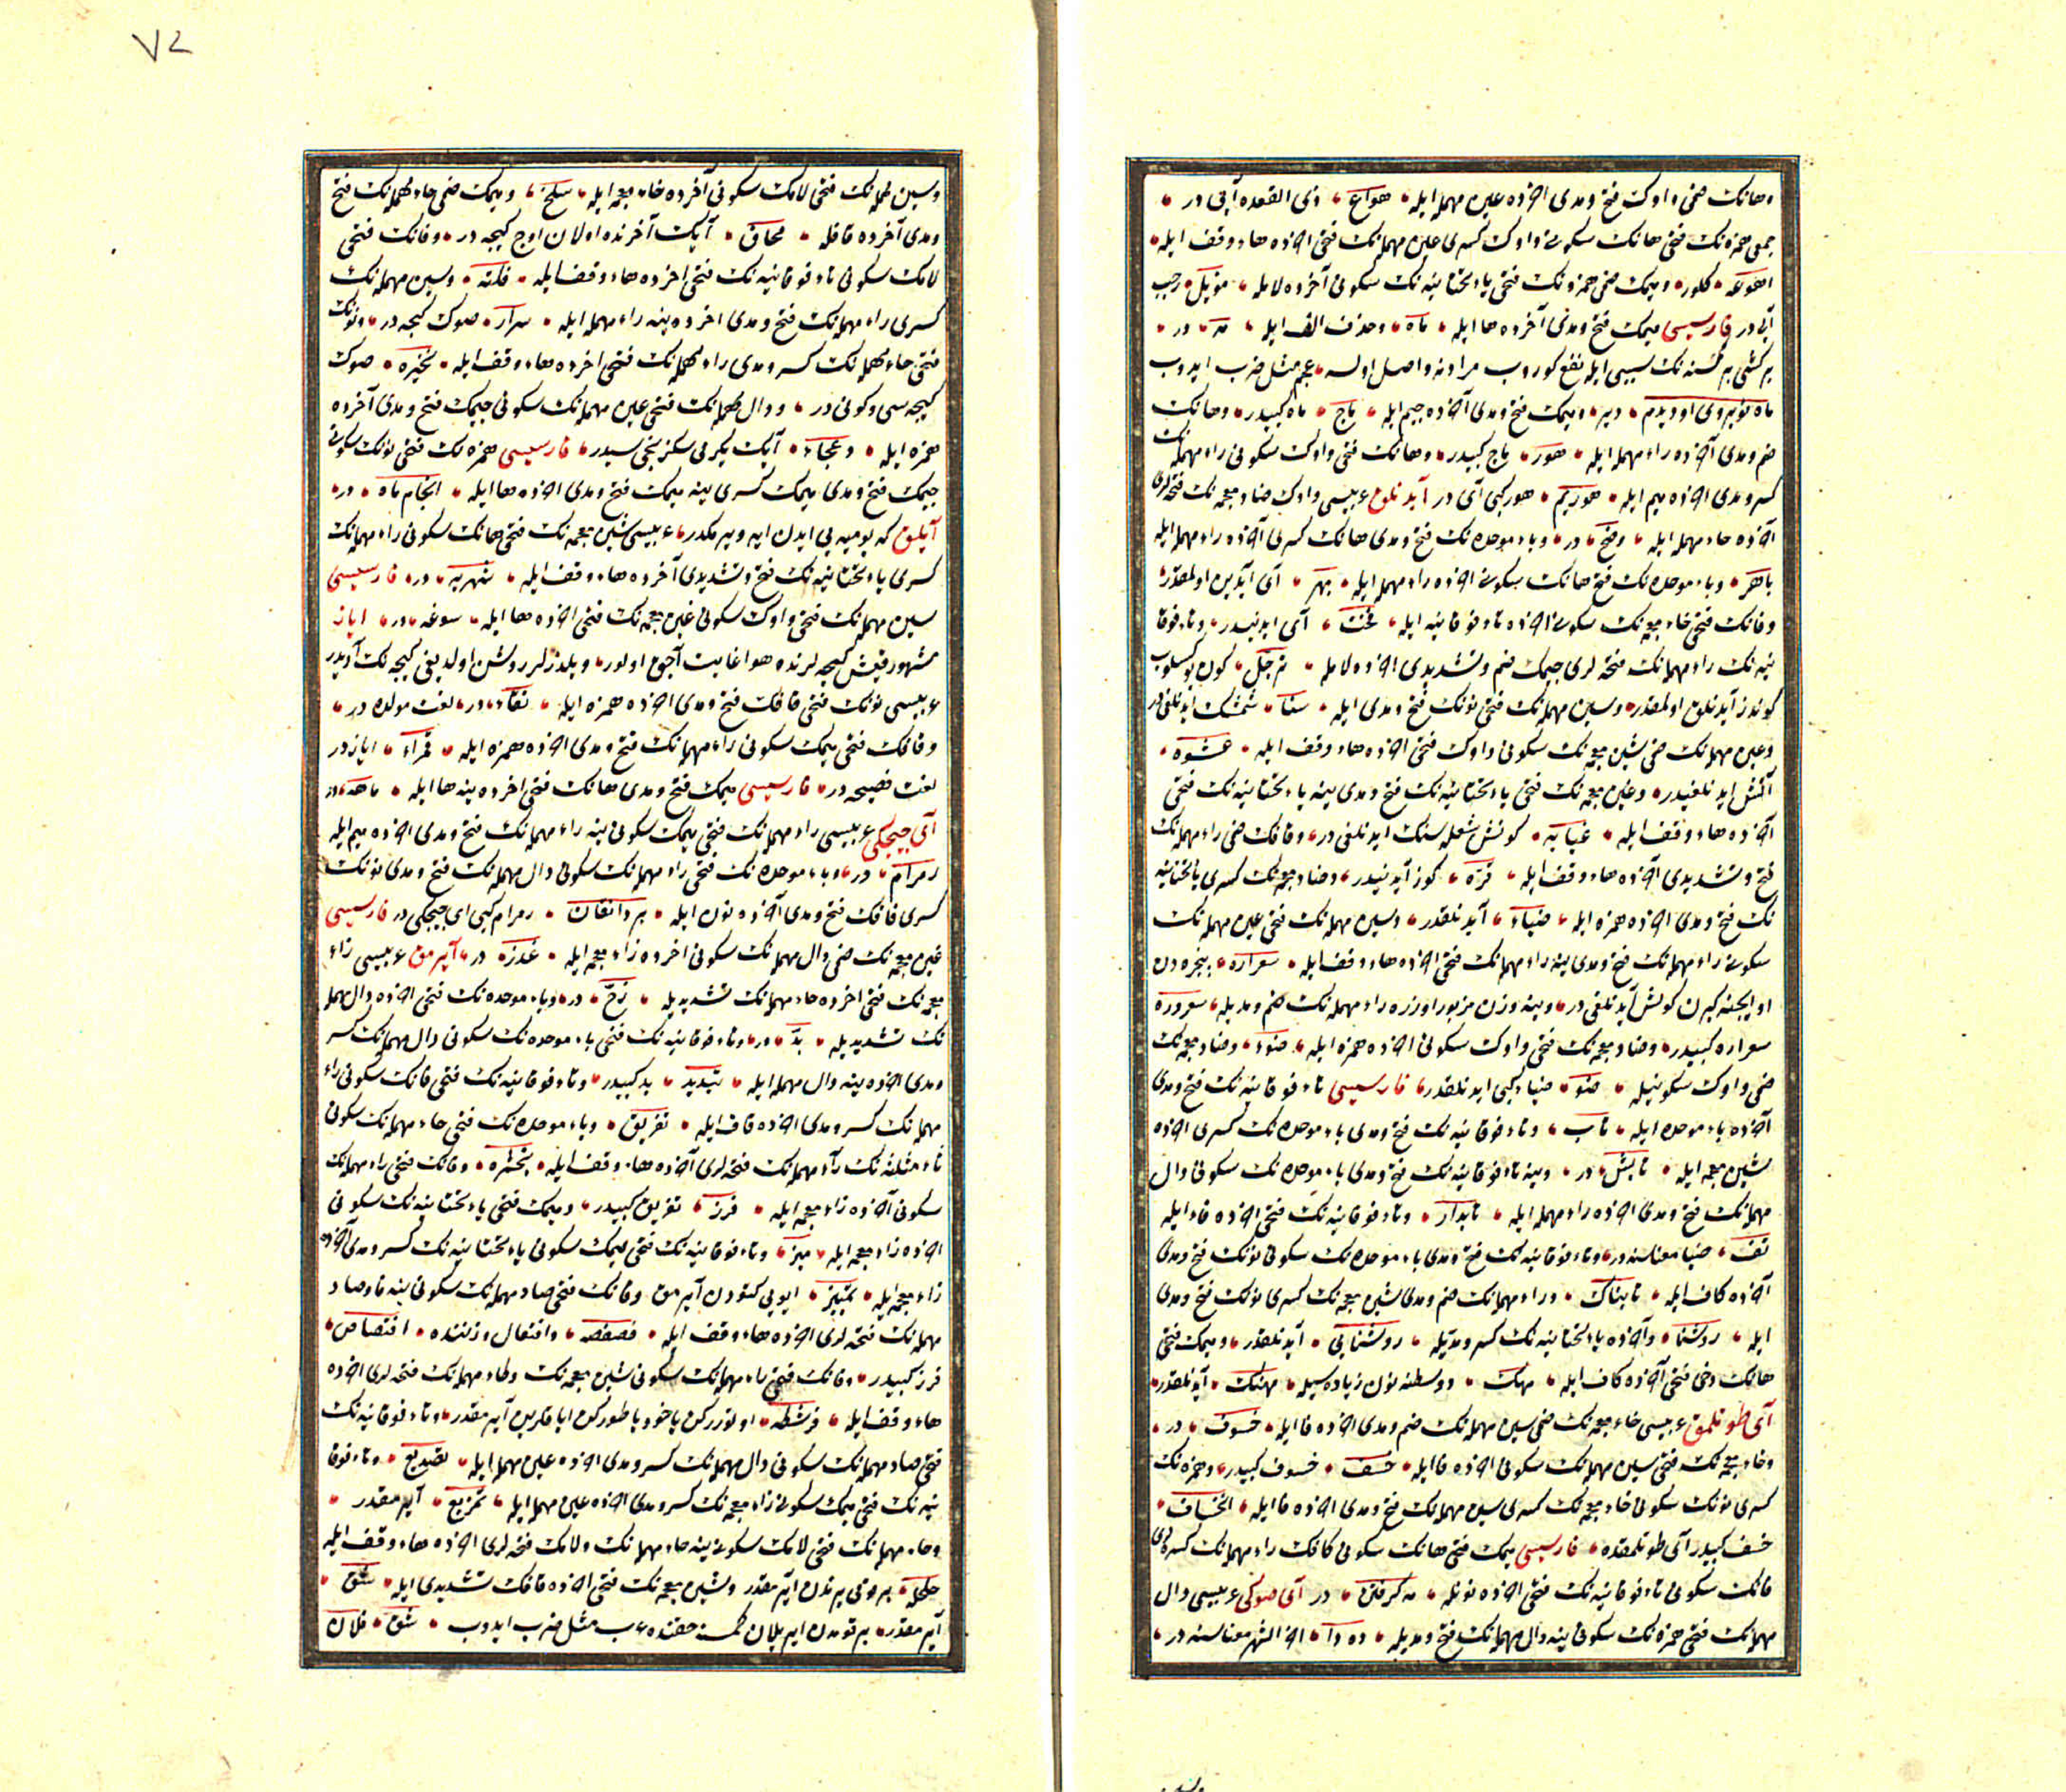 وهانك ضمی واوك فتح ومدی اخرده عین مهمله ایله هواع ذی القعده آیی در
جمعی همزه نك فتحی هانك سكونی واوك كسری عین مهمله نك فتحی اخرده هاء وقف ایله
اهوعه كلور ومیمك ضمی همزه نك فتحی یاء تحتانیه نك سكونی آخرده لامله مؤیل رجب
آیی در فارسیسی میمك فتح ومدی آخرده ها ایله ماه وحذف الف ایله مه در
بر كشی بر كسنه نك سببی ایله نفع كوروب مرادنه واصل اولسه عجم مثل ضرب ایدوب
ماه دیر ومیمك فتح ومدی آخرده جیم ایله ماج ماه كبیدر وهانك
ضم ومدی آخرده راء مهمله ایله هور ماج كبیدر وهانك فتحی واوك سكونی راء مهمله نك
كسر ومدی اخرده میم ایله هوریم هور كبی آی در آیدنلوق عربیسی واوك ضاد معجمه نك فتحه لری
آخرده حاء مهمله ایله وضح در وباء موحده نك فتح ومدی هانك كسری آخرده راء مهمله ایله
باهر وباء موحده نك فتح هانك سكونی اخرده راء مهمله ایله بهر آی آیدین اولمقدر
وفانك فتحی خاء معجمه نك سكونی اخرده تاء فوقانیه ایله فخت آی ایدنیدر وتاء فوقا
نیه نك راء مهمله نك فتحه لری جیمك ضم وتشدیدی اخرده لامله ترجل كون یوكسلوب
كوندز آیدنلوق اولمقدر وسین مهمله نك فتحی نونك فتح ومدی ایله سنا شمشك ایدنلغی در
وعین مهمله نك ضمی شین معجمه نك سكونی واوك فتحی اخرده هاء وقف ایله عشوه
آتش ایدنلغیدر وغین معجمه نك فتحی یاء تحتانیه نك فتح ومدی ینه یاء تحتانیه نك فتحی
آخرده هاء وقف ایله غیایه كونش شعله سنك ایدنلغی در وقافك ضمی راء مهمله نك
فتح وتشدیدی آخرده هاء وقف ایله قره كوز آیدنیدر وضاد معجمه نك كسری یاء تحتانیه
نك فتح ومدی اخرده همزه ایله ضیاء آیدنلقدر وسین مهمله نك فتحی عین مهمله نك
سكونی راء مهمله نك فتح ومدی ینه راء مهمله نك فتحی اخرده هاء وقف ایله سعراره پنجره دن
او ایچنه كیرن كونش آیدنلغی در وینه وزن مزبور اوزره راء مهمله نك ضم ومدیله سعروره
سعراره كبیدر وضاد معجمه نك فتحی واوك سكونی اخرده همزه ایله ضوء وضاد معجمه نك
ضمی واوك سكونیله ضوء ضیاء كبی ایدنلقدر فارسیسی تاء فوقانیه نك فتح ومدی
آخرده باء موحده ایله تاب وتاء فوقانیه نك فتح ومدی باء موحده نك كسری اخرده
شین معجمه ایله تابش در وینه تاء فوقانیه نك فتح ومدی باء موحده نك سكونی دال
مهمله نك فتح ومدی اخرده راء مهمله ایله تابدار وتاء فوقانیه نك فتحی اخرده فاء ایله
تف ضیا معناسنه در وتاء فوقانیه نك فتح ومدی باء موحده نك سكونی نونك فتح ومدی
آخرده كاف ایله تابناك وراء مهمله نك ضم ومدی شین معجمه نك كسری نونك فتح ومدی
ایله روشنا وآخرده یاء تحتانیه نك كسر ومدیله روشنایی آیدنلقدر ومیمك فتحی
هانك دخی فتحی آخرده كاف ایله مهك ووسطنه نون زیاده سیله مهنك آیدنلقدر
آی طوتلمق عربیسی خاء معجمه نك ضمی سین مهمله نك ضم ومدی اخرده فا ایله خسوف در
وخاء معجمه نك فتحی سین مهمله نك سكونی اخرده فا ایله خسف خسوف كبیدر وهمزه نك
كسری نونك سكونی خاء معجمه نك كسری سین مهمله نك فتح ومدی اخرده فا ایله انخساف
خسف كبیدر آی طوتلمقده فارسیسی میمك فتحی هانك سكونی كافك راء مهمله نك كسره لری
فانك سكونی تاء فوقانیه نك فتحی اخرده نونله مه كرفتن در آی صوكی عربیسی دال
مهمله نك فتحی همزه نك سكونی ینه دال مهمله نك فتح ومدیله دءدا اخر الشهر معناسنه در
وسین مهمله نك فتحی لامك سكونی آخرده خاء معجمه ایله سلخ ومیمك ضمی حاء مهمله نك فتح
ومدی آخرده قافله محاق آیك آخرنده اولان اوج كیجه در وفانك فتحی
لامك سكونی تاء فوقانیه نك فتحی اخرده هاء وقف ایله فلته وسین مهمله نك
كسری راء مهمله نك فتح ومدی اخرده ینه راء مهمله ایله سرار صوك كیجه در ونونك
فتحی حاء مهمله نك كسر ومدی راء مهمله نك فتحی اخرده هاء وقف ایله نحیره صوك
كیجه سی وكونی در ودال مهمله نك فتحی عین مهمله نك سكونی جیمك فتح ومدی آخرده
همزه ایله دعجاء آیك یكرمی سكزنجی سیدر فارسیسی همزه نك فتحی نونك سكونی
جیمك فتح ومدی میمك كسری ینه میمك فتح ومدی اخرده ها ایله انجام ماه در
آیلق كه یومیه یی ایدن ایه ویرمكدر عربیسی شین معجمه نك فتحی هانك سكونی راء مهمله نك
كسری یاء تحتانیه نك فتح وتشدیدی آخرده هاء وقف ایله شهریه در فارسیسی
سین مهمله نك فتحی واوك سكونی غین معجمه نك فتحی اخرده ها ایله سوغه در ایاز
مشهور قیش كیجه لرنده هوا غایت آچق اولور ویلدزلر روشن اولدیغی كیجه نك آدیدر
عربیسی نونك فتحی قافك فتح ومدی اخرده همزه ایله نقاء در لغت مولده در
وقافك فتحی میمك سكونی راء مهمله نك فتح ومدی اخرده همزه ایله قمراء ایازدر
لغت فصیحه در فارسیسی میمك فتح ومدی هانك فتحی اخرده ینه ها ایله ماهه در
آی چیچكی عربیسی راء مهمله نك فتحی میمك سكونی ینه راء مهمله نك فتح ومدی اخرده میم ایله
رمرام در وباء موحده نك فتحی راء مهمله نك سكونی دال مهمله نك فتح ومدی نونك
كسری قافك فتح ومدی آخرده نون ایله بردانقان رمرام كبی ای چیچكی در فارسیسی
غین معجمه نك ضمی دال مهمله نك سكونی اخرده زاء معجمه ایله غدز در آیرمق عربیسی زاء
معجمه نك فتحی اخرده حاء مهمله نك تشدیدیله زح در وباء موحده نك فتحی اخرده دال مهمله
نك تشدیدیله بد در وتاء فوقانیه نك فتحی باء موحده نك سكونی دال مهمله نك كسر
ومدی اخرده ینه دال مهمله ایله تبدید بد كبیدر وتاء فوقانیه نك فتحی فانك سكونی راء
مهمله نك كسر ومدی اخرده قاف ایله تفریق وباء موحده نك فتحی حاء مهمله نك سكونی
ثاء مثلثه نك راء مهمله نك فتحه لری آخرده هاء وقف ایله بحثره وفانك فتحی راء مهمله نك
سكونی آخرده زاء معجمه ایله فرز تفریق كبیدر ومیمك فتحی یاء تحتانیه نك سكونی
اخرده زاء معجمه ایله میز وتاء فوقانیه نك فتحی میمك سكونی یاء تحتانیه نك كسر ومدی آخرده
زاء معجمه ایله تمییز ایویی كتودن آیرمق وفانك فتحی صاد مهمله نك سكونی ینه فا وصاد
مهمله نك فتحه لری اخرده هاء وقف ایله فصفصه وافتعال وزننده افتصاص
فرز كبیدر وفانك فتحی راء مهمله نك سكونی شین معجمه نك وطاء مهمله نك فتحه لری اخرده
هاء وقف ایله فرشطه اوتورركن یاخود یاطوركن ایاقلرین آیرمقدر وتاء فوقانیه نك
فتحی صاد مهمله نك سكونی دال مهمله نك كسر ومدی اخرده عین مهمله ایله تصدیع وتاء فوقا
نیه نك فتحی میمك سكونی زاء معجمه نك كسر ومدی اخرده عین مهمله ایله تمزیع آیرمقدر
وحاء مهمله نك فتحی لامك سكونی ینه حاء مهمله نك ولامك فتحه لری اخرده هاء وقف ایله
حلحله برنی یرندن ایرمقدر وشین معجمه نك فتحی اخرده قافك تشدیدی ایله شق
آیرمقدر بر قومدن ایریلان كمسنه حقنده عرب مثل ضرب ایدوب شق فلان